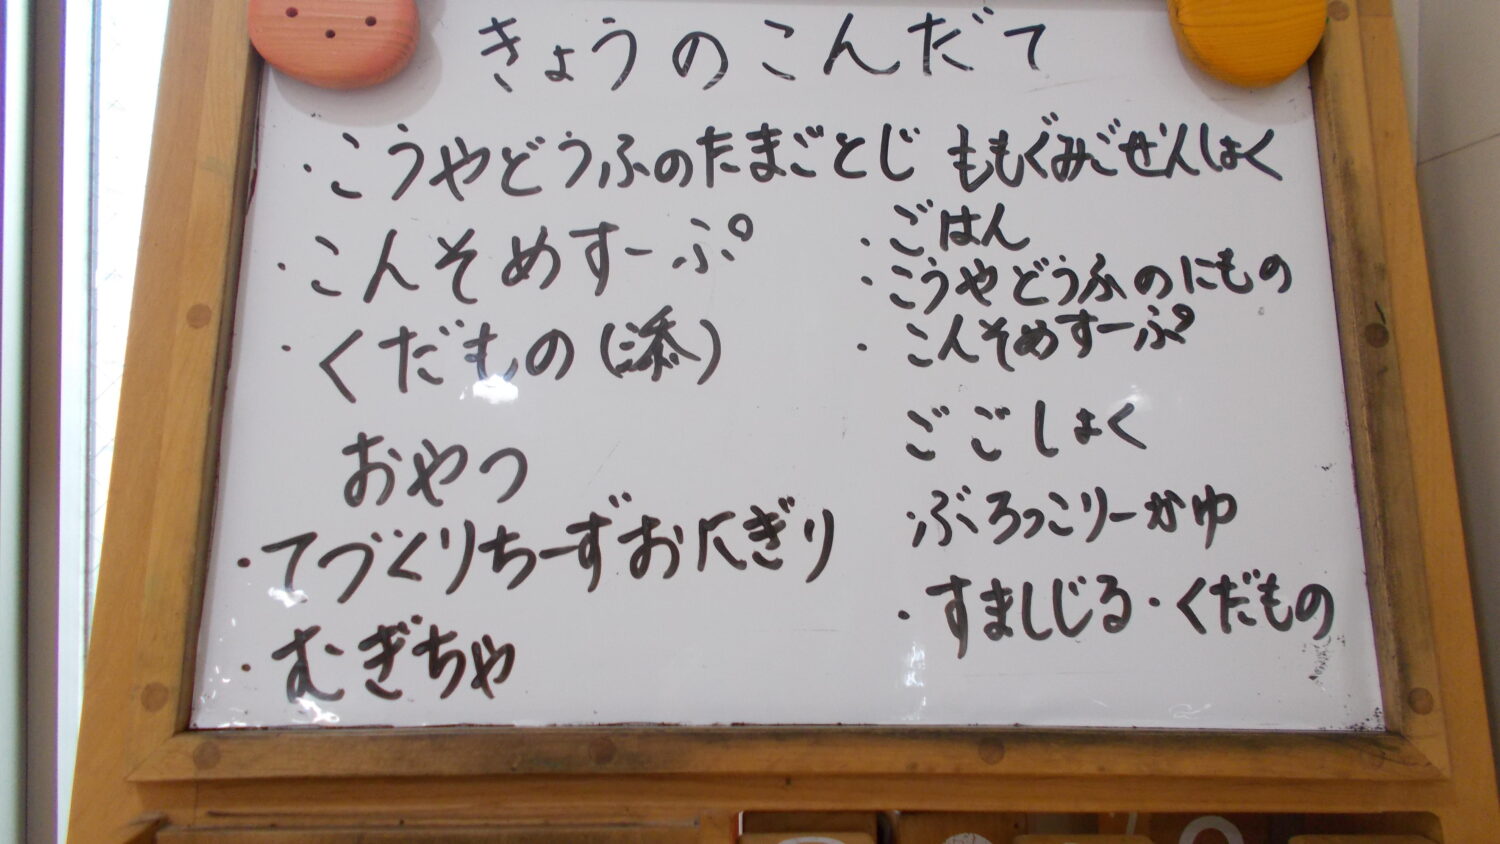 きょうのこんだて
・こうやどうふのたまごとじ
・こんそめすーぷ
・くだもの(添)
おやつ
・てづくりちーずおにぎり
・むぎちゃ
ももぐみごぜんしょく
・ごはん
・こうやどうふのにもの
・こんそめすーぷ
ごごしょく
・ぶろっこりーかゆ
・すましじる・くだもの